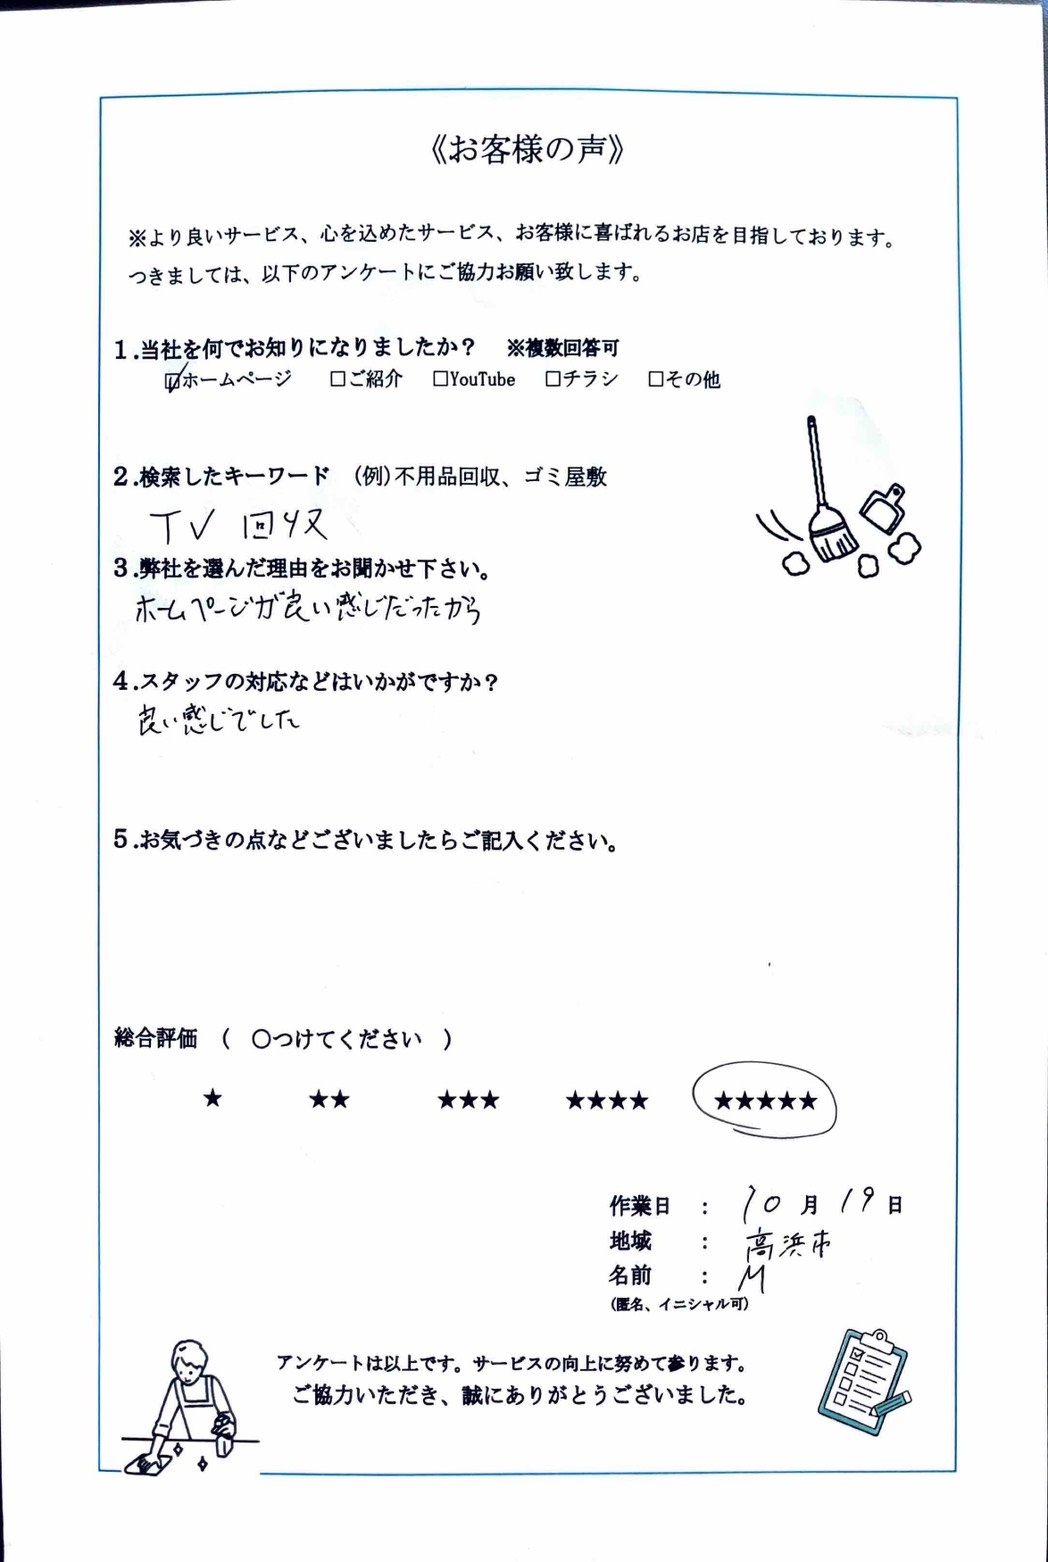 《お客様の声》
※より良いサービス、心を込めたサービス、お客様に喜ばれるお店を目指しております。
つきましては、以下のアンケートにご協力お願い致します。
1.当社を何でお知りになりましたか？　※複数回答可
☑ホームページ　□ご紹介　□YouTube　□チラシ　□その他
2.検索したキーワード　(例)不用品回収、ゴミ屋敷
TV 回収
3.弊社を選んだ理由をお聞かせ下さい。
ホームページが良い感じだったから
4.スタッフの対応などはいかがですか？
良い感じでした
5.お気づきの点などございましたらご記入ください。
総合評価　(　○つけてください　)
★　★★　★★★　★★★★　★★★★★
作業日　：　10 月 19 日
地域　：　高浜市
名前　：　M
(匿名、イニシャル可)
アンケートは以上です。サービスの向上に努めて参ります。
ご協力いただき、誠にありがとうございました。